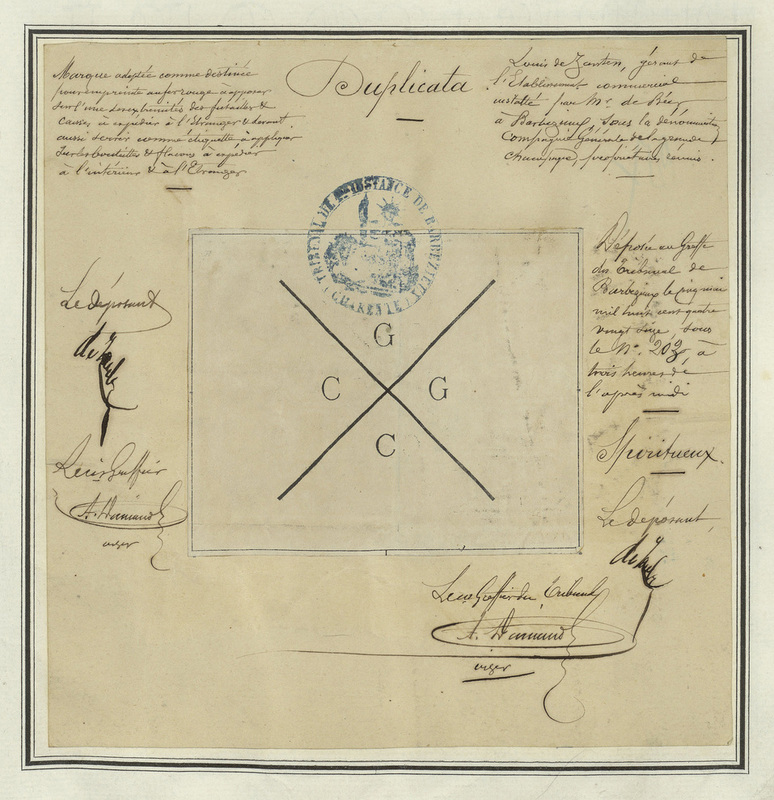 Duplicata
Marque adoptée comme destinée
pour empreinte au fer rouge à apposer
sur l'une des extrémités des futailles &
caisses à expédier à l'Etranger & devant
aussi servir comme étiquette à appliquer
sur les bouteilles & flacons à expédier
à l'intérieur & à l'Etranger
Louis de Zanten, gérant de
l'Etablissement commercial
installé par Mr. de
à Barbezieux, sous la dénomination
Compagnie Générale de la grande
champagne, propriétaires réunis.
TRIBUNAL DE 1ERE INSTANCE DE BARBEZIEUX
(CHARENTE)
G
C G
C
Déposée au Greffe
du Tribunal de
Barbezieux le
mil huit cent quatre
vingt sous
le No. à
trois heures de
l'après midi
Spiritueux
Le déposant
Le déposant,
Greffier
A.
Greffier du Tribunal
A.